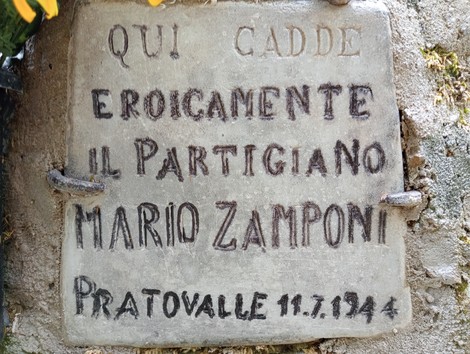 QUI CADDE
EROICAMENTE
IL PARTIGIANO
MARIO ZAMPONI
PRATOVALLE 11.7.1944